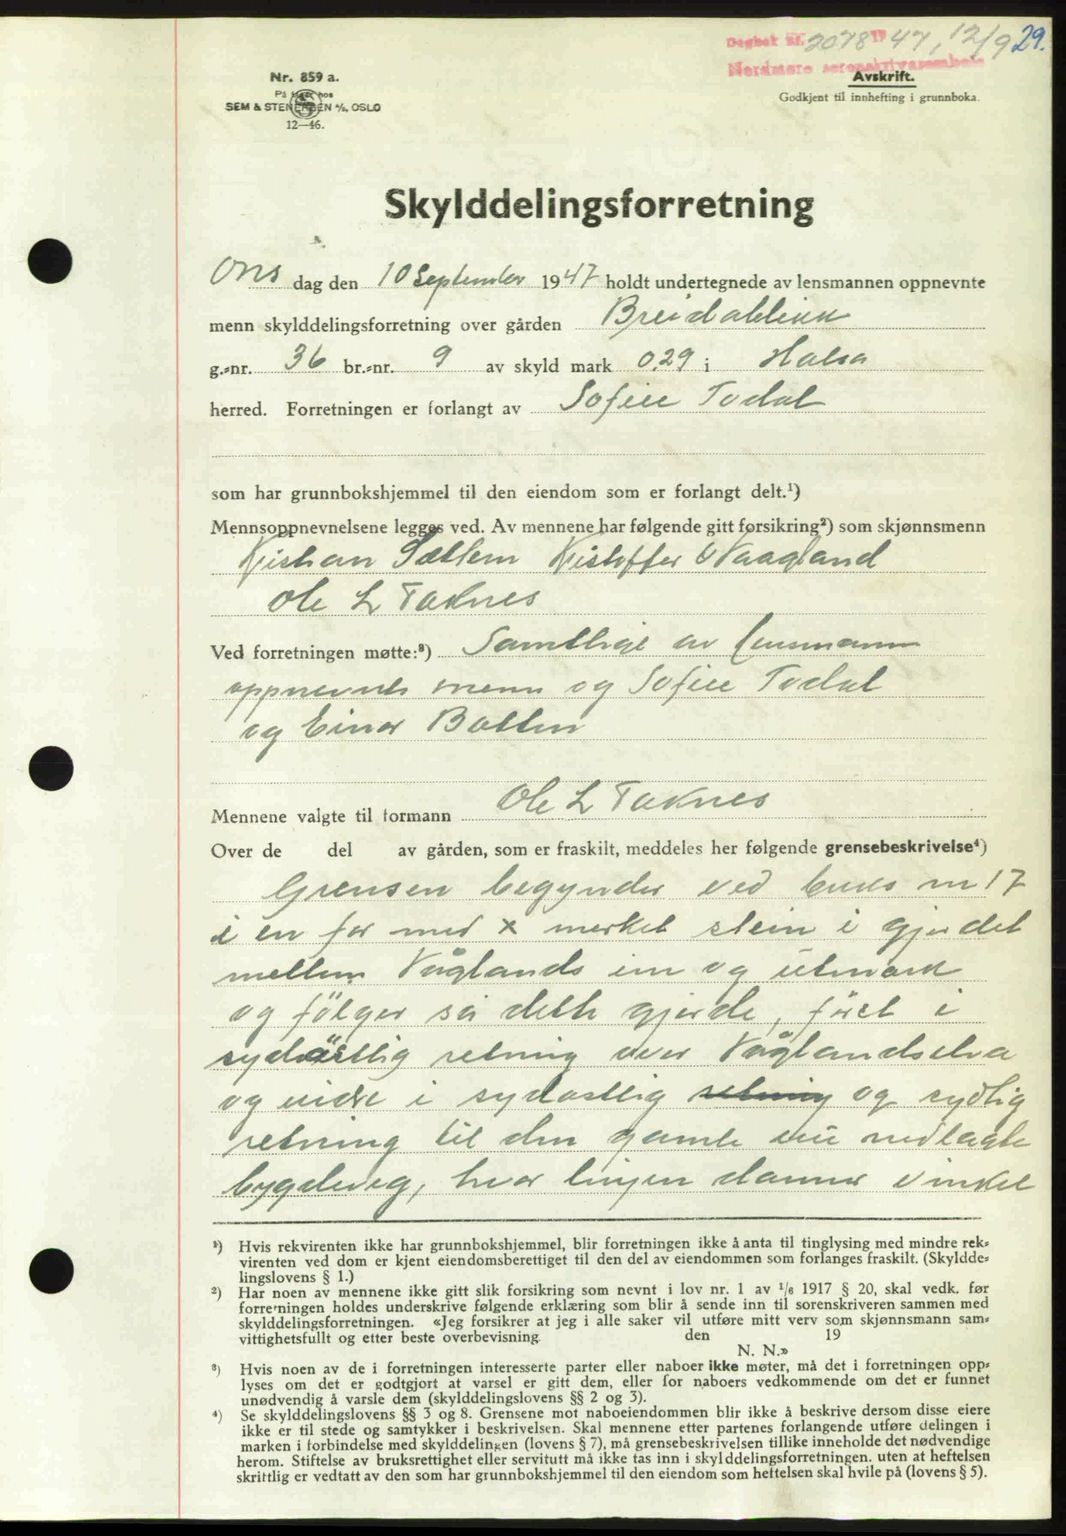 Dagbok nr. 2078 19 47, 12/9 29.
Nordmøre sorenskriverembete
Nr. 859 a.
På lager hos
SEM & STENERSEN A/S, OSLO
12—46.
Avskrift.
Godkjent til innhefting i grunnboka.
Skylddelingsforretning
Ons dag den 10 September 1947 holdt undertegnede av lensmannen oppnevnte
menn skylddelingsforretning over gården Breidablikk
g.-nr. 36 br.-nr. 9 av skyld mark 0,29 i Halsa
herred. Forretningen er forlangt av Sofie Todal
som har grunnbokshjemmel til den eiendom som er forlangt delt.¹)
Mennsoppnevnelsene legges ved. Av mennene har følgende gitt forsikring²) som skjønnsmenn
Kristian Sættem Kristoffer Waagland
Ole L Taknes
Ved forretningen møtte:³) Samtlige av lensmann
oppnevnte menn og Sofie Todal
og Einar Botten
Mennene valgte til formann Ole L Taknes
Over de del av gården, som er fraskilt, meddeles her følgende grensebeskrivelse⁴)
Grensen begynder ved bruks nr 17
i en før med x merket stein i gjerdet
mellem Våglands inn og utmark
og følger så dette gjerde, først i
sydøstlig retning over Våglandselva
og vidre i sydøstlig retning og sydlig
retning til den gamle nu nedlagte
bygdeveg, hvor linjen danner vinkel
¹) Hvis rekvirenten ikke har grunnbokshjemmel, blir forretningen ikke å anta til tinglysing med mindre rek-
virenten ved dom er kjent eiendomsberettiget til den del av eiendommen som forlanges fraskilt. (Skyldde-
lingslovens § 1.)
²) Har noen av mennene ikke gitt slik forsikring som nevnt i lov nr. 1 av 1/6 1917 § 20, skal vedk. før
forretningen holdes underskrive følgende erklæring som blir å sende inn til sorenskriveren sammen med
skylddelingsforretningen. «Jeg forsikrer at jeg i alle saker vil utføre mitt verv som skjønnsmann sam-
vittighetsfullt og etter beste overbevisning den 19
N. N.»
³) Hvis noen av de i forretningen interesserte parter eller naboer ikke møter, må det i forretningen opp-
lyses om det er godtgjort at varsel er gitt dem, eller for naboers vedkommende om det er funnet
unødvendig å varsle dem (skylddelingslovens §§ 2 og 3).
⁴) Se skylddelingslovens §§ 3 og 8. Grensene mot naboeiendommen blir ikke å beskrive dersom disse eiere
ikke er til stede og samtykker i beskrivelsen. Skal mennene etter partenes forlangende utføre delingen i
marken i forbindelse med skylddelingen (lovens § 7), må grensebeskrivelsen tillike inneholde det nødvendige
herom. Stiftelse av bruksrettighet eller servitutt må ikke tas inn i skylddelingsforretningen. uten at heftelsen
skriftlig er vedtatt av den som har grunnbokshjemmel til den eiendom som heftelsen skal hvile på (lovens § 5).